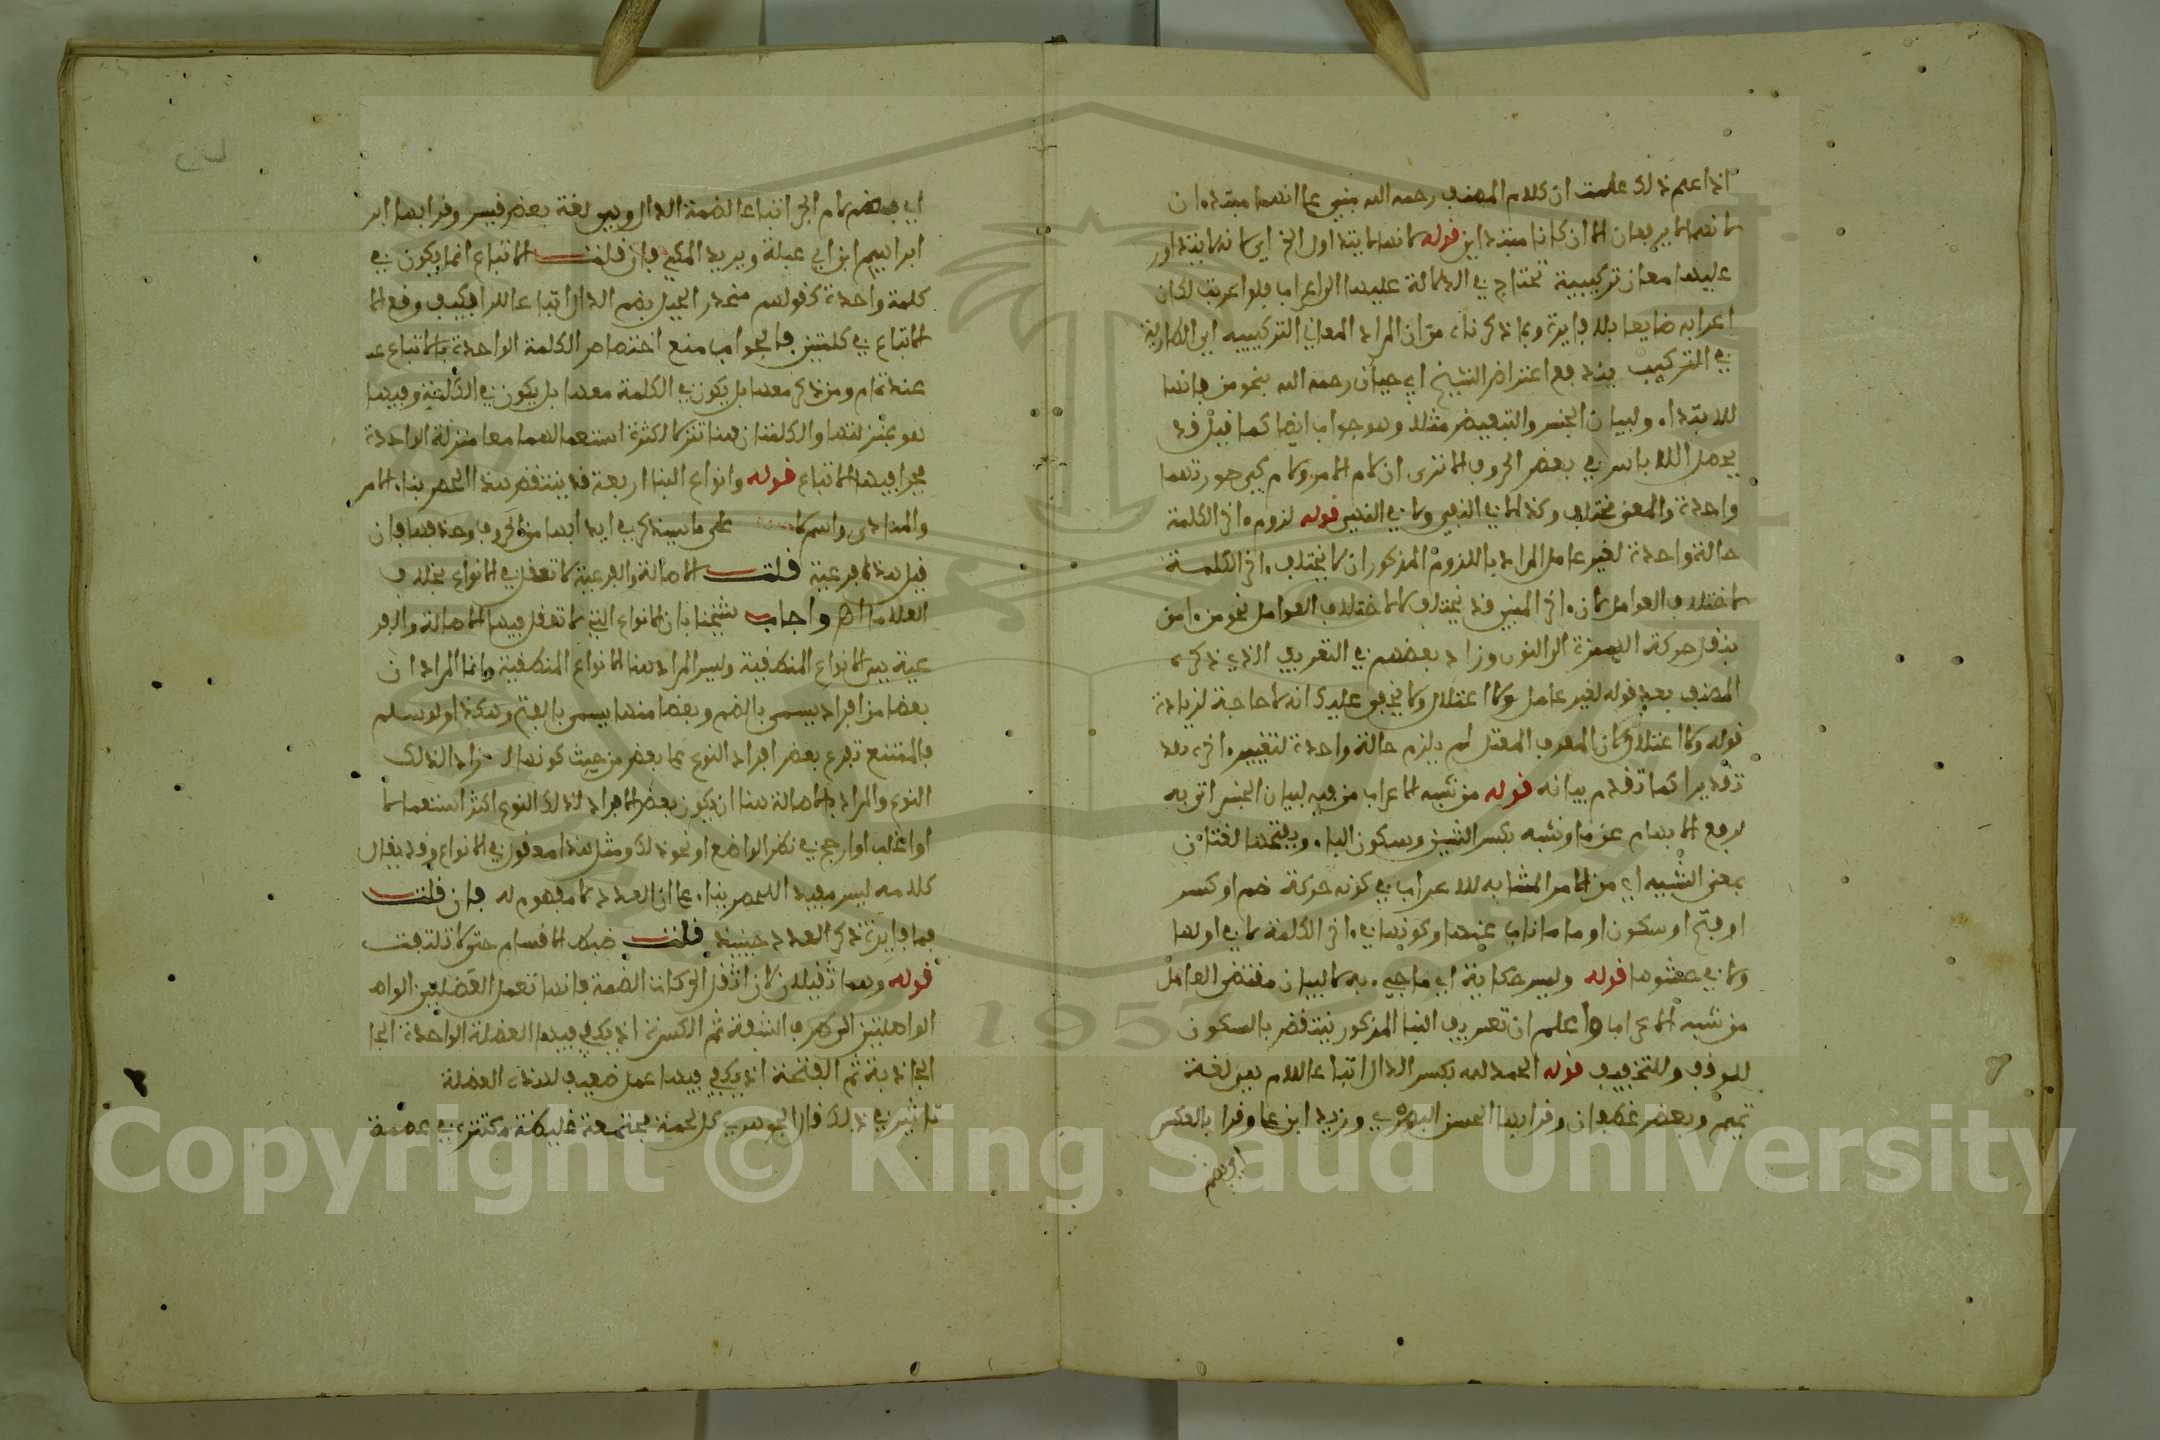 اذا علم ذلك علمت ان كلام المصنف رحمه الله مبني على انهما مبتدءان
لانهما لا يرفعان الا ان كانا مبتدأين قوله لانها لا يتداول الخ اي لانه لا يتداور
عليها معان تركيبية تحتاج في الدلالة عليها الى اعراب فلو اعربت لكان
اعرابه ضايعا بلا فايدة وبما ذكرناه من ان المراد المعاني التركيبيه اي الطارية
في التركيب يندفع اعتراض الشيخ ابي حيان رحمه الله بنحو من فانها
للابتداء ولبيان الجنس والتبعيض مثلا وهو جواب ايضا كما قيل قد
يحصل الالباس في بعض الحروف الا ترى ان لام الامر ولام كي صورتهما
واحدة والمعنى مختلف وكذا لا في النفي ولا في النهي قوله لزوم ءاخر الكلمة
حالة واحدة لغير عامل المراد باللزوم المذكور ان لا يختلف ءاخر الكلمة
لاختلاف العوامل لان ءاخر المبني قد يختلف لا لاختلاف العوامل نحو من ءامن
بنقل حركة الهمزة الى النون وزاد بعضهم في التعريف الذي ذكره
المصنف بعد قوله لغير عامل ولا اعتلال ولا يخفى عليك انه لا حاجة لزيادة
قوله ولا اعتلال لان المعرب المعتل لم يلزم حالة واحدة لتغيير ءاخره
تقديرا كما تقدم بيانه قوله من شبه الاعراب من فيه لبيان الجنس اتى به
لرفع الابهام عن ما وشبه بكسر الشين وسكون الباء وبفتحهما لغتان
بمعنى الشبيه اي من الامر المشابه للاعراب في كونه حركة ضم او كسر
او فتح او سكون او ما ناب عنها وكونها في ءاخر الكلمة لا في اولها
ولا في حشوها قوله وليس حكاية اي ما جيء به لا لبيان مقتضى العامل
من شبه الاعراب واعلم ان تعريف البنا المذكور ينتقض بالسكون
للوقف وللتخفيف قوله الحمد لله بكسر الدال اتباعا للام هي لغة
تميم وبعض غطفان وقرا بها الحسن البصري وزيد ابن علي وقرا بالعكس
اي بضم
اي بضم لام الجر اتباعا لضمة الدال وهي لغة بعض قيس وقرا بها ابر
ابراهيم ابن ابي عبلة ويزيد المكي فان قلت الاتباع انما يكون في
كلمة واحدة كقولهم منحدر الجبل بضم الدال اتباعا للرا فكيف وقع الا
الاتباع في كلمتين فالجواب منع اختصاص الكلمة الواحدة بالاتباع عد
عند تمام ومن ذكر معها بل يكون في الكلمة معها بل يكون في الكلمة وفيها
هو بمنزلتها والكلمتان هنا تنزلا لكثرة استعمالهما معا منزلة الواحدة
فجرا فيها الاتباع قوله وانواع البنا اربعة قد ينتقض هذا الحصر بناء الامر
والمنادى واسم لا على ما سيذكره في ابدالها من الحروف وحذفها فان
قيل هذا فرعية قلت الاصالة والفرعية لا تعقل في الانواع بخلاف
العلامات اه واجاب شيخنا بان الانواع التي لا تعقل فيها الاصالة والفر
عية هي الانواع المنطقية وليس المراد هنا الانواع المنطقية وانما المراد ان
بعضا من افراد يسمى بالضم وبعضا منها يسمى بالفتح وهكذا ولو سلم
فالممتنع تفرع بعض افراد النوع على بعض من حيث كونها افراد الذلك
النوع والمراد بالاصالة هنا ان يكون بعض الافراد لذلك النوع اكثر استعمالا
او اغلب او ارجح في نظر الواضع او نحو ذلك ومثل هذا معقول في الانواع وقد يقال
كلامه ليس مفيد الحصر بناء على ان العدد لا مفهوم له فان قلت
فما فايدة ذكر العدد حينيذ قلت ضبط الاقسام حتى لا تلتفت
قوله وهما ثقيلان لان اثقل الحركات الضمة فانها تعمل العضلتين الواص
الواصلتين الى طرف الشفة ثم الكسرة اذ يكفي فيها العضلة الواحدة الجا
الجاذبة ثم الفتحة اذ يكفي فيها عمل ضعيف لهذه العضلة
تاثير في ذلك قال الجوهري كل لحمة مجتمعة غليظة مكتنزة في عصبة